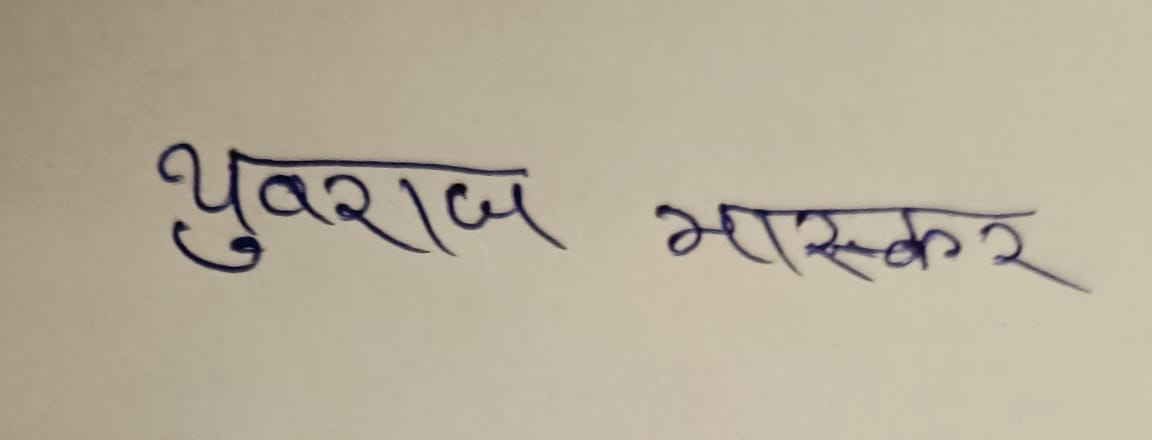 युवराज भास्कर